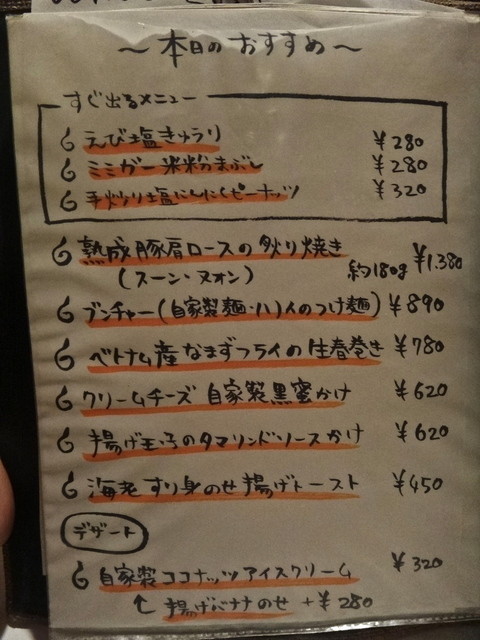 ～本日のおすすめ～
すぐ出るメニュー
えび塩きゅうり ¥280
ミミガー米粉まぶし ¥280
手炒り塩にんにくピーナッツ ¥320
熟成豚肩ロースの炙り焼き ¥1.380
(スーン・ヌオン) 約180g
ブンチャー(自家製麺・ハノイのつけ麺) ¥890
ベトナム産なまずフライの生春巻き ¥780
クリームチーズ 自家製黒蜜かけ ¥620
揚げ玉子のタマリンドソースかけ ¥620
海老すり身のせ揚げトースト ¥450
デザート
自家製ココナッツアイスクリーム ¥320
揚げバナナのせ +¥280